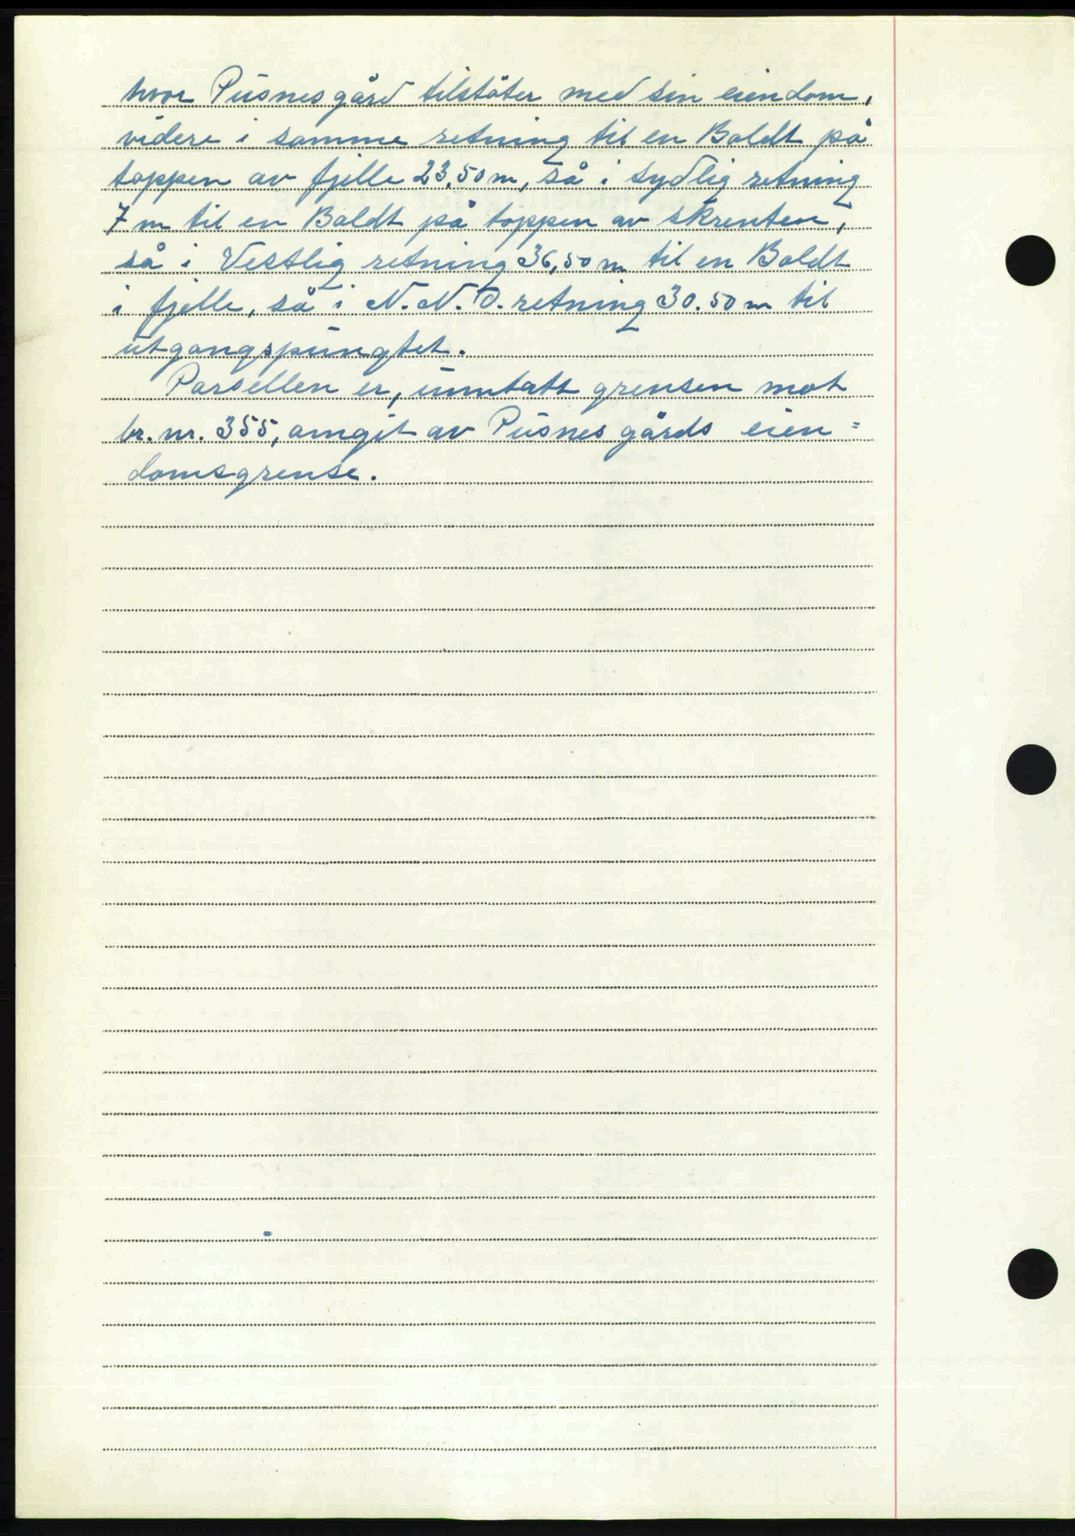 hvor Pusnes gård tilstöter med sin eiendom,
videre i samme retning til en Boldt på
toppen av fjelle 23,50 m, så i sydlig retning
7 m til en Boldt på toppen av skrenten,
så i Vestlig retning 36,50 m til en Boldt
i fjelle, så i N.N.O. retning 30.50 m til
utgangspungtet.
Parsellen er, unntatt grensen mot
br. nr. 355, omgit av Pusnes gårds eien=
domsgrense.